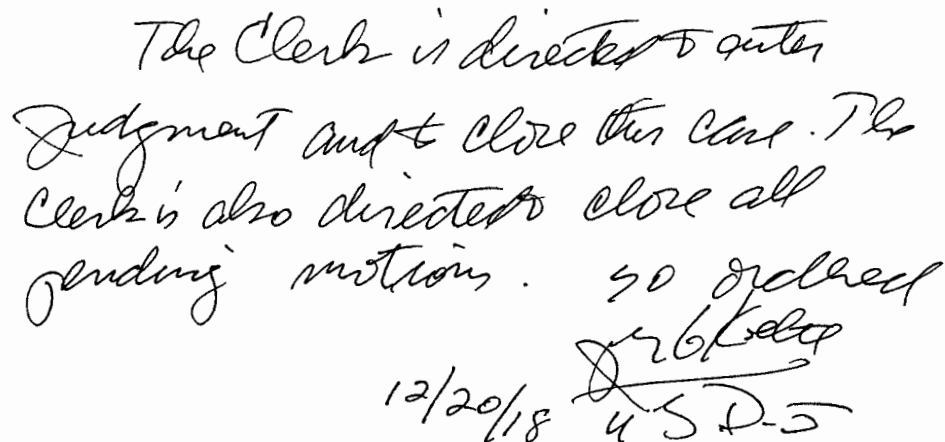 The Clerk is directed to enter
judgment and to close this case. The
Clerk is also directed to close all
pending motions. so ordered
12/20/18 USDJ